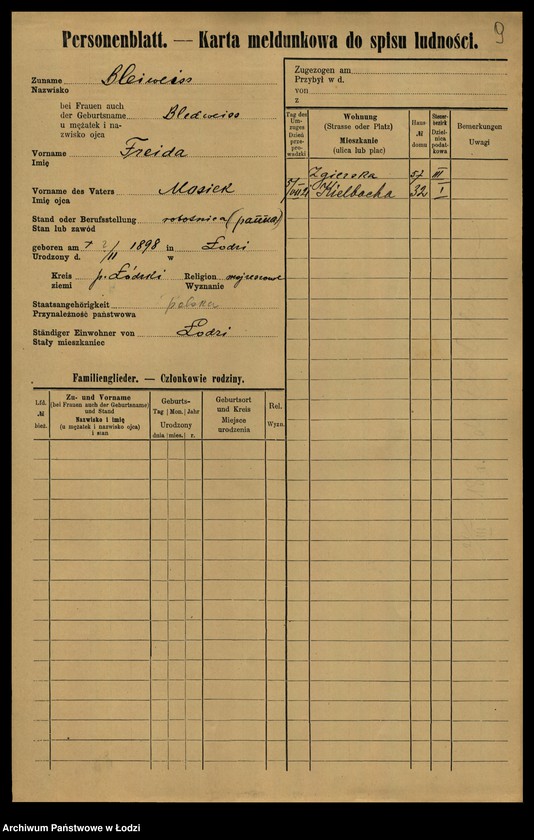 9
Personenblatt. — Karta meldunkowa do spisu ludności.
Zuname Bleiweiss
Nazwisko
bei Frauen auch
der Geburtsname Bledweiss
u mężatek i na-
zwisko ojca
Vorname Freida
Imię
Vorname des Vaters Mosiek
Imię ojca
Stand oder Berufsstellung robotnica (panna)
Stan lub zawód
geboren am 2/II 1898 in Łodzi
Urodzony d. w
Kreis p. Łódzki Religion mojżeszowe
ziemi Wyznanie
Staatsangehörigkeit polska
Przynależność państwowa
Ständiger Einwohner von Łodzi
Stały mieszkaniec
Zugezogen am
Przybył w d.
von
z
Tag des Um-zuges Dzień prze-pro-wadzki
Wohnung (Strasse oder Platz) Mieszkanie (ulica lub plac)
Haus № domu
Steuer-bezirk Dziel-nica podat-kowa
Bemerkungen Uwagi
Zgierska 57 III
Kielbacha 32 I
Familienglieder. — Członkowie rodziny.
Lfd. № bież.
Zu- und Vorname (bei Frauen auch der Geburtsname) und Stand Nazwisko i imię (u mężatek i nazwisko ojca) i stan
Geburts- Tag Mon. Jahr Urodzony dnia mies. r.
Geburtsort und Kreis Miejsce urodzenia
Rel. Wyzn.
Archiwum Państwowe w Łodzi